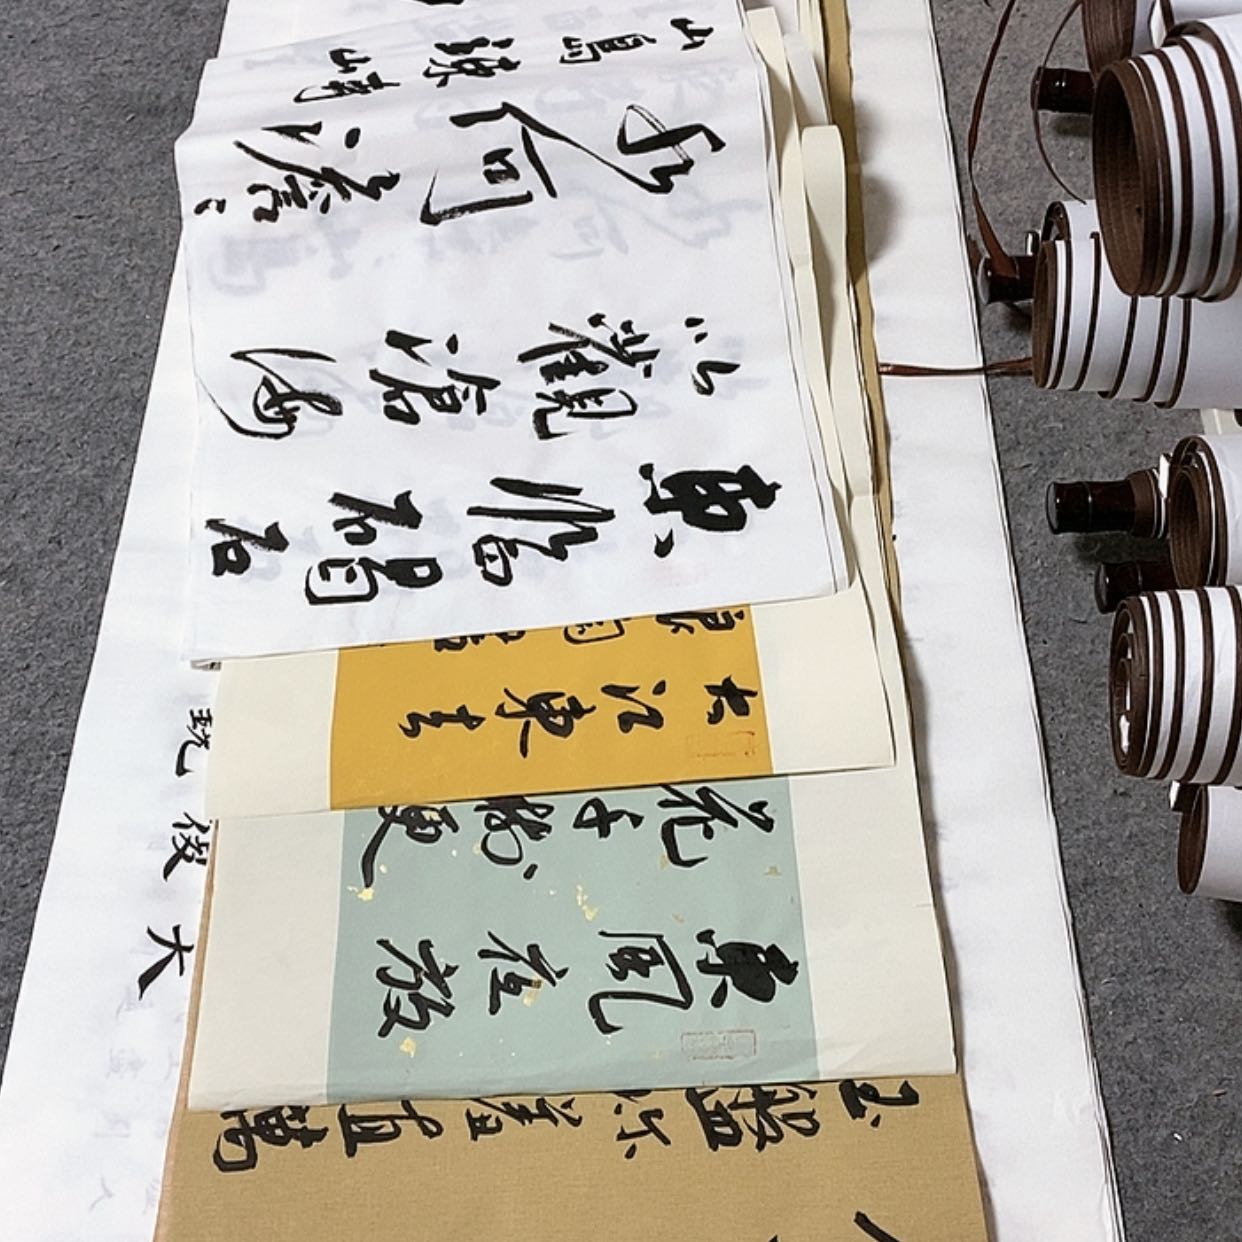 東臨碣石
以觀滄海
水何澹澹
山島竦峙
大江東去
東風夜放
花千樹更
玉盤珍羞直萬
大